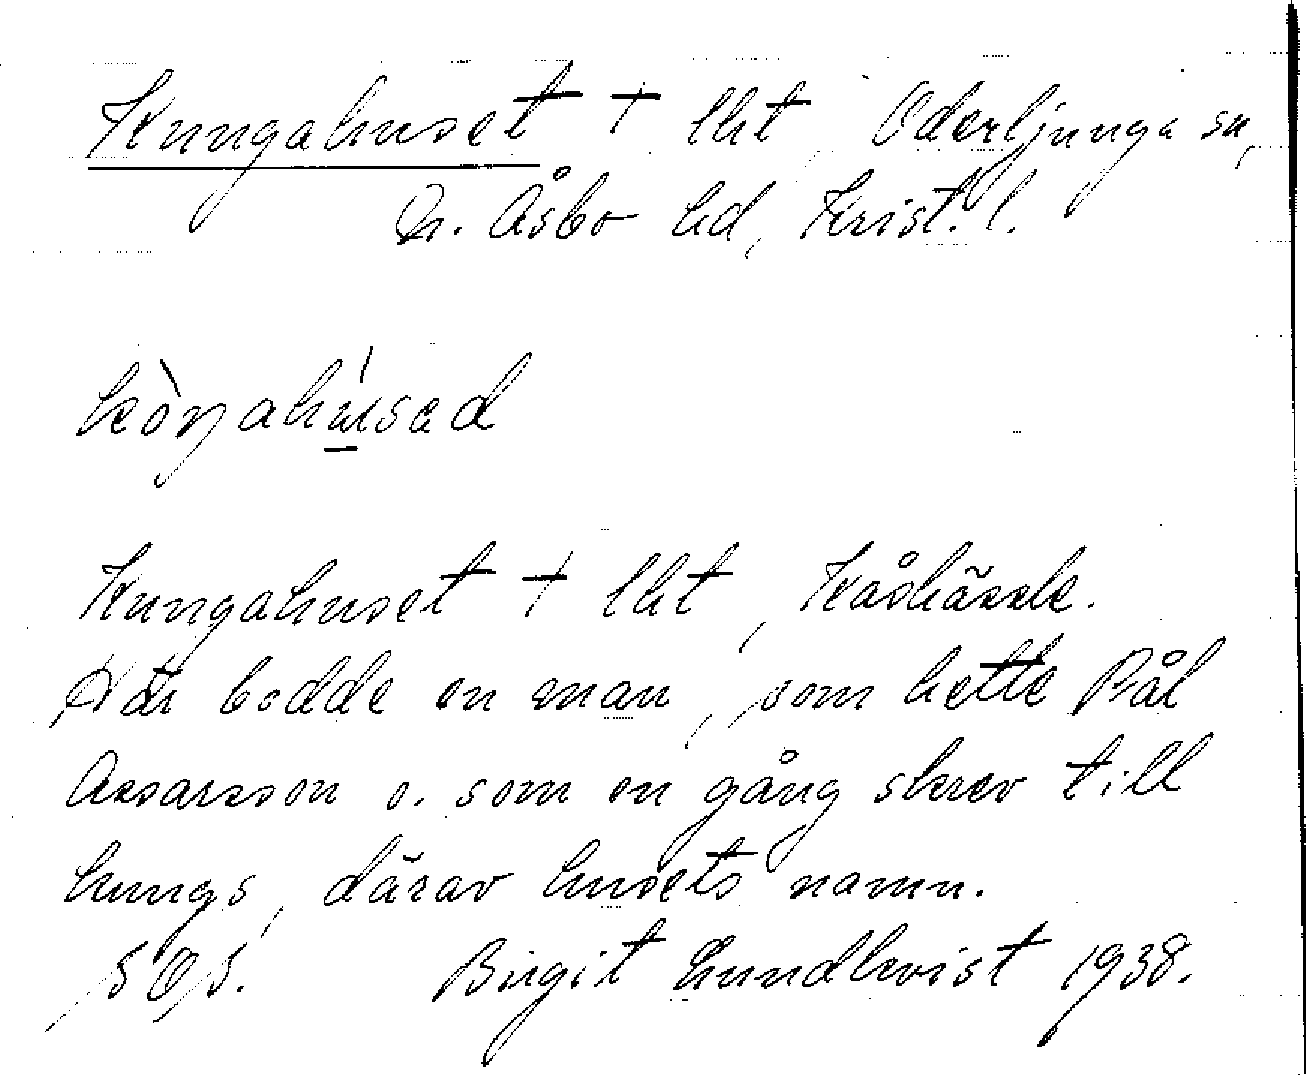 Kungahuset † lht, Oderljunga sn,
N. Åsbo hd, Krist. l.
kòŋahúsed
Kungahuset † lht, Kåskässle.
Här bodde en man, som hette Pål
Assarsson o. som en gång skrev till
kungs, därav husets namn.
Birgit Lundkvist 1938.